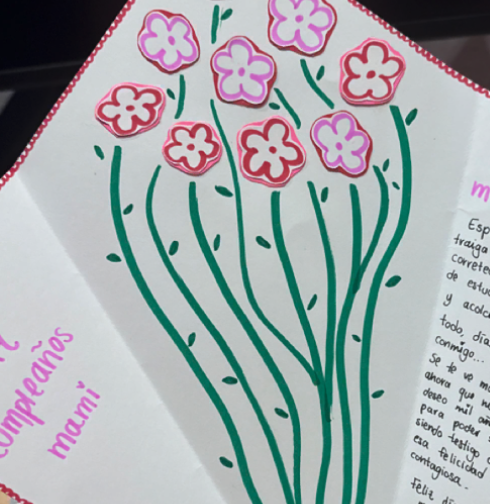 cumpleaños
mami
m
Esp
traiga
correte
de estu
y acolc
todo, día
conmigo...
Se te ve mu
ahora que n
deseo mil añ
para poder
siendo testigo
esa felicidad
contagiosa.
Feliz di